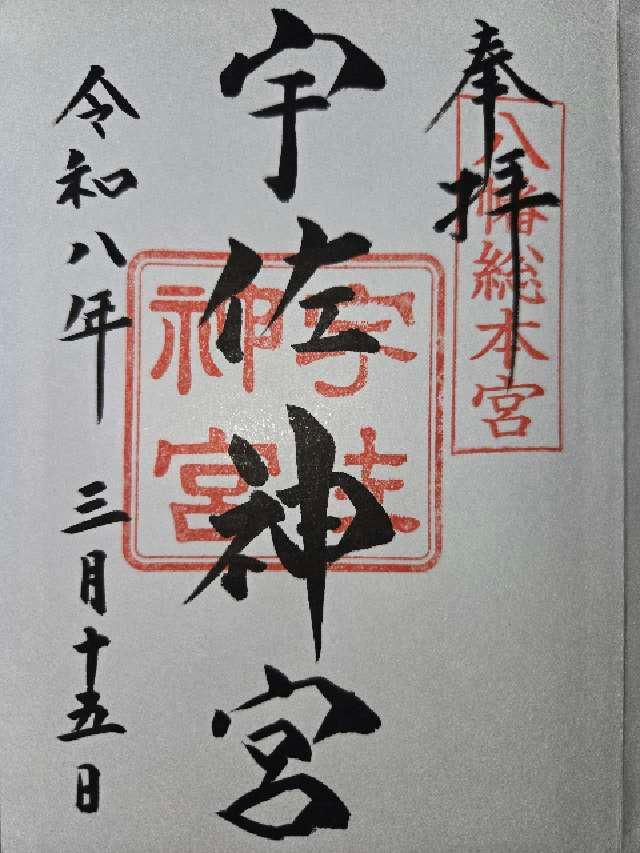 奉拝
八幡総本宮
宇佐神宮
宇佐
神宮
令和八年 三月十五日